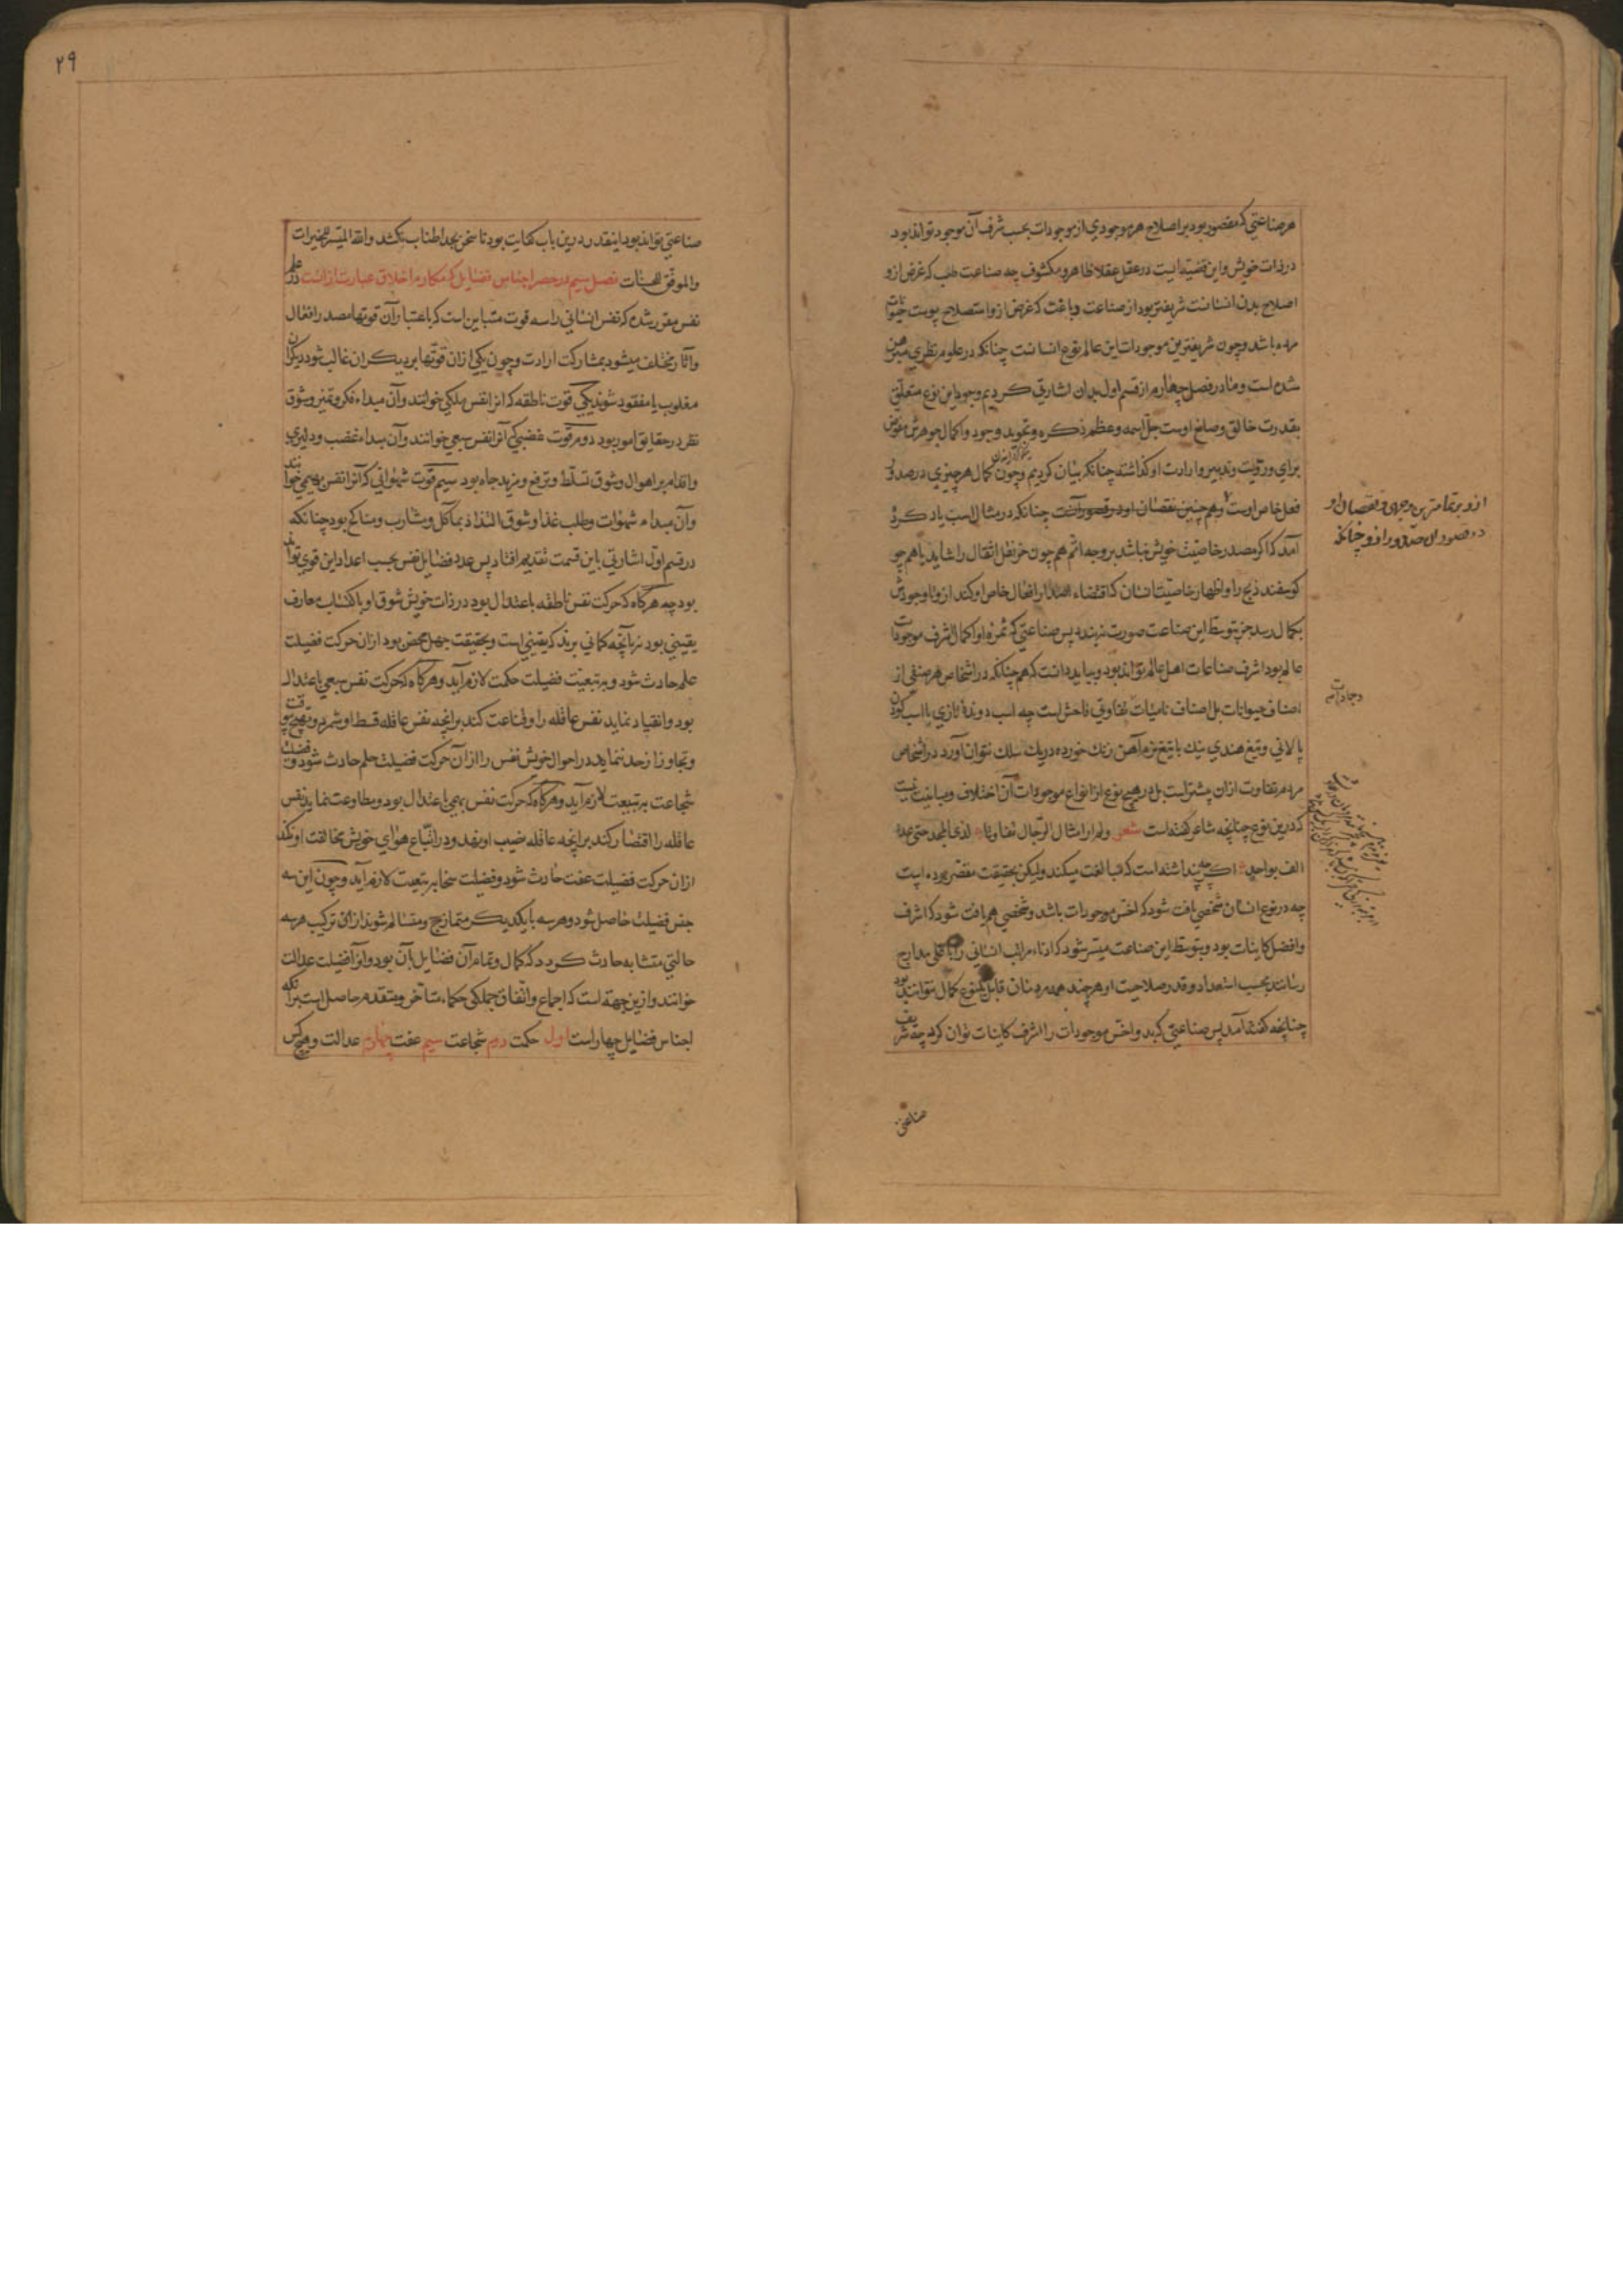 هر صناعتی که مقصور بود بر اصلاح هر موجودی از موجودات بحسب شرف آن موجود تواند بود
در ذات خویش و این قضیّه ایست در عقل عقلا ظاهر و مکشوف چه صناعت طب که غرض ازو
اصلاح بدن انسانست شریفتر بود از صناعت دباغت که غرض ازو استصلاح پوست حیوانات
مرده باشد و چون شریفترین موجودات این عالم نوع انسانست چنانکه در علوم نظری مبرهن
شده است و ما در فصل چهارم از قسم اول بدان اشارتی کردیم وجود این نوع متعلّق
بقدرت خالق و صانع اوست جلّ اسمه و عظم ذکره و تجوید وجود و اکمال جوهرش مفوّض
برای و رؤیت و تدبیر و ارادت او گذاشته چنانکه بیان کردیم و چون کمال هر چیزی در صدور
فعل خاص اوست و هم چنین نقصان او در قصور آنست چنانکه در مثال اسب یاد کرده
آمد که اگر مصدر خاصیّت خویش نباشد بر وجه اتم هم چون خر نقل اثقال را شاید یا هم چو
گوسفند ذبح را و اظهار خاصیّت انسان که اقتضاء اصدار افعال خاص او کند ازو تا وجودش
بکمال رسد جز بتوسط این صناعت صورت نبندد پس صناعتی که ثمره او اکمال اشرف موجودات
عالم بود اشرف صناعات اهل عالم تواند بود و بباید دانست که هم چنانکه در اشخاص هر صنفی از
اصناف حیوانات بل اصناف نامیات تفاوتی فاحش است چه اسب دونده تازی با اسب کودن
پالانی و تیغ هندی نیک با تیغ نرم آهن زنک خورده در یک سلک نتوان آورد در اشخاص
مردم تفاوت از آن بیشتر است بل در هیچ نوع از انواع موجودات آن اختلاف و مباینت نیست
که درین نوع چنانچه شاعر گفته است شعر ولم ار امثال الرّجال تفاوتا لدی المجد حتی عد
الف بواحد اگر چه پنداشته است که مبالغت میکند ولیکن بحقیقت مقصّر بوده است
چه در نوع انسان شخصی یافت شود که اخسّ موجودات باشد و شخصی هم یافت شود که اشرف
و افضل کاینات بود و بتوسط این صناعت میسر شود که ادناء مراتب انسانی را با علی مدارج
رسانند بحسب استعداد و قدر صلاحیت او هر چند همه مردمان قابل یکنوع کمال نتوانند بود
چنانچه گفته آمد پس صناعتی که بدو اخسّ موجودات را اشرف کاینات توان کرد چه شریف
ازو بر تمامترین وجهی و نقصان او
در قصور آن صدور ازو چنانکه
و جمادات
صناعتی
۲۹
صناعتی تواند بود اینقدر درین باب کفایت بود تا سخن بحد اطناب نکشد والله المیسّر للخیرات
والموفّق للحسنات فصل سیم در حصر اجناس فضایل که مکارم اخلاق عبارت از آنست در علم
نفس مقرر شده که نفس انسانی را سه قوت متباین است که باعتبار آن قوتها مصدر افعال
و آثار مختلف میشود بمشارکت ارادت و چون یکی از آن قوتها بر دیگران غالب شود دیگران
مغلوب یا مفقود شوند یکی قوت ناطقه که انرا نفس ملکی خوانند و آن مبداء فکر و تمیز و شوق
نظر در حقایق امور بود دوم قوت غضبی که آنرا نفس سبعی خوانند و آن مبداء غضب و دلیری
و اقدام بر اهوال و شوق تسلّط و ترفع و مزید جاه بود سیم قوت شهوانی که آنرا نفس بهیمی خوانند
و آن مبداء شهوات و طلب غذا و شوق التذاذ بمآکل و مشارب و مناکح بود چنانکه
در قسم اوّل اشارتی باین قسمت تقدیم افتاد پس عدد فضایل نفس بحسب اعداد این قوی تواند
بود چه هرگاه که حرکت نفس ناطقه باعتدال بود در ذات خویش و شوق او باکتساب معارف
یقینی بود نه بآنچه گمانی برند که یقینی است و بحقیقت جهل محض بود از آن حرکت فضیلت
علم حادث شود و به تبعیّت فضیلت حکمت لازم آید و هرگاه که حرکت نفس سبعی باعتدال
بود و انقیاد نماید نفس عاقله را و قناعت کند بر انچه نفس عاقله قسط او شمرد و تهیّج بیوقت
و تجاوز از حد ننماید در احوال خویش نفس را از آن حرکت فضیلت حلم حادث شود و فضیلت
شجاعت به تبعیت لازم آید و هرگاه که حرکت نفس بهیمی باعتدال بود و مطاوعت نماید نفس
عاقله را و اقتصار کند بر انچه عاقله نصیب او نهد و در اتّباع هوای خویش مخالفت او نکند
از آن حرکت فضیلت عفت حادث شود و فضیلت سخا به تبعیت لازم آید و چون این سه
جنس فضیلت حاصل شود و هر سه با یکدیگر متمازج و متسالم شوند از آن ترکیب هر سه
حالتی متشابه حادث گردد که کمال و تمام آن فضایل بآن بود و آنرا فضیلت عدالت
خوانند و ازین جهة است که اجماع و اتّفاق جملگی حکماء متاخّر و متقدم حاصل است برانکه
اجناس فضایل چهار است اول حکمت دوم شجاعت سیم عفت چهارم عدالت و هیچ کس